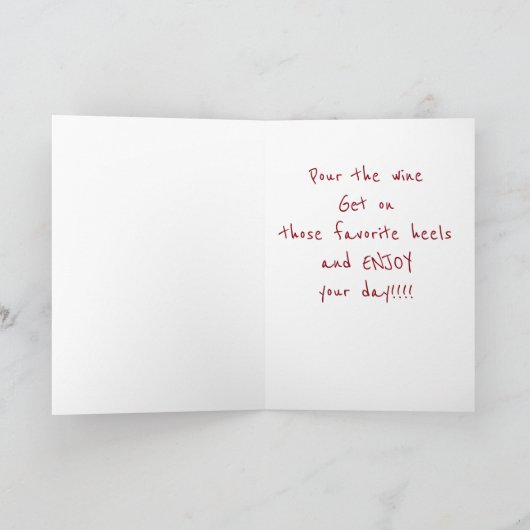 Pour the wine
Get on
those favorite heels
and ENJOY
your day!!!!